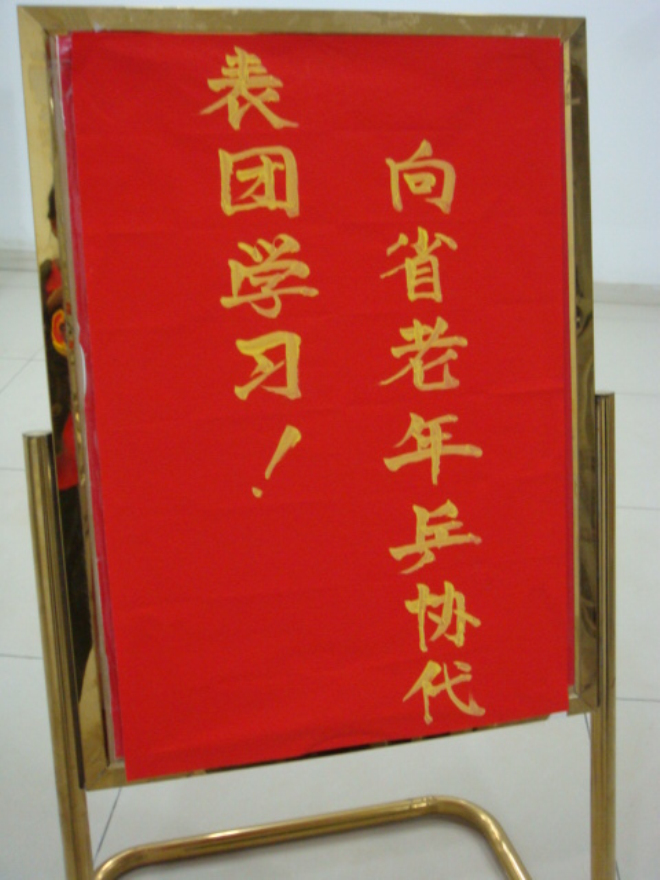 向省老年乒协代
表团学习！